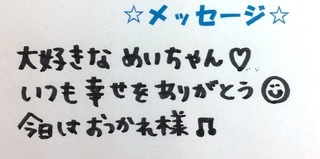 ☆メッセージ☆
大好きな めいちゃん♡
いつも 幸せを ありがとう ☺
今日は おつかれ様 ♫